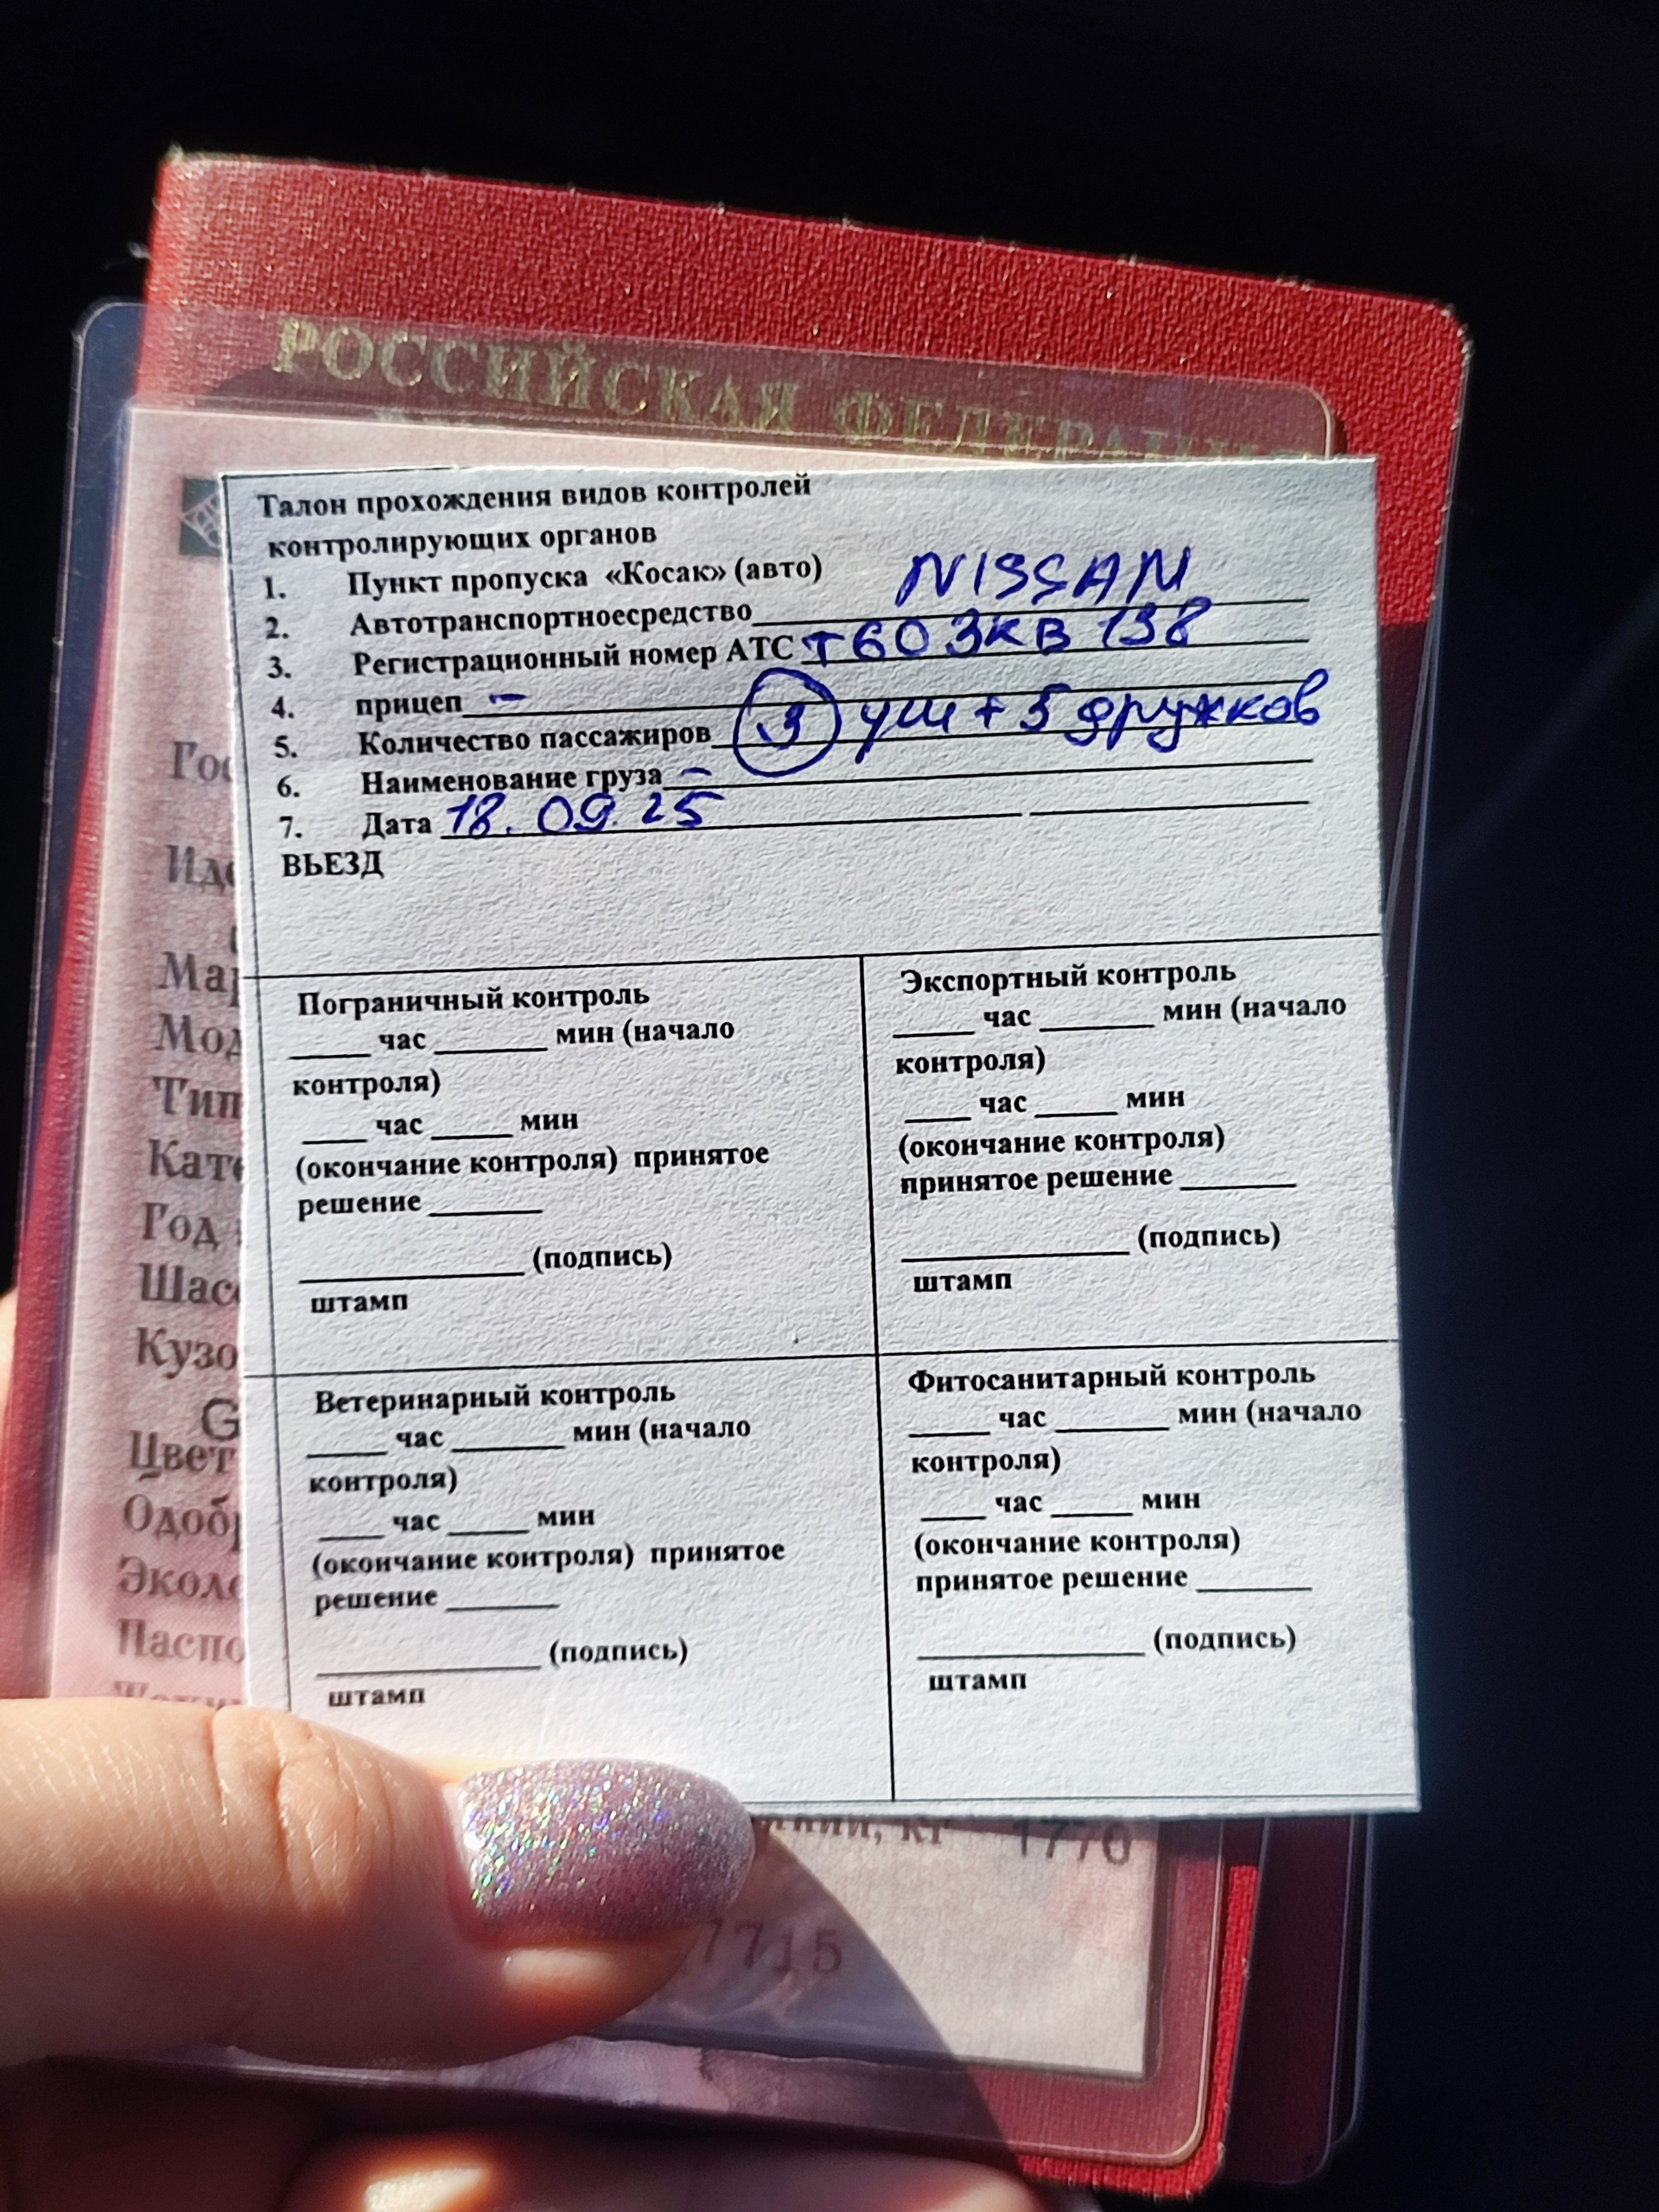 РОССИЙСКАЯ ФЕДЕРАЦИ
Талон прохождения видов контролей
контролирующих органов
1. Пункт пропуска «Косак» (авто)
2. Автотранспортноесредство NISSAN
3. Регистрационный номер АТС Т603КВ 138
4. прицеп -
5. Количество пассажиров уш + 5 дружков
6. Наименование груза -
7. Дата 18.09.25
ВЬЕЗД
Пограничный контроль
____ час ____ мин (начало
контроля)
____ час ____ мин
(окончание контроля) принятое
решение ____
____ (подпись)
штамп
Экспортный контроль
____ час ____ мин (начало
контроля)
____ час ____ мин
(окончание контроля)
принятое решение ____
____ (подпись)
штамп
Ветеринарный контроль
____ час ____ мин (начало
контроля)
____ час ____ мин
(окончание контроля) принятое
решение ____
____ (подпись)
штамп
Фитосанитарный контроль
____ час ____ мин (начало
контроля)
____ час ____ мин
(окончание контроля)
принятое решение ____
____ (подпись)
штамп
Гос
Ид
Мар
Мод
Тип
Кате
Год
Шасс
Кузо
G
Цвет
Одобр
Эколо
Паспо
кг 1770
7715